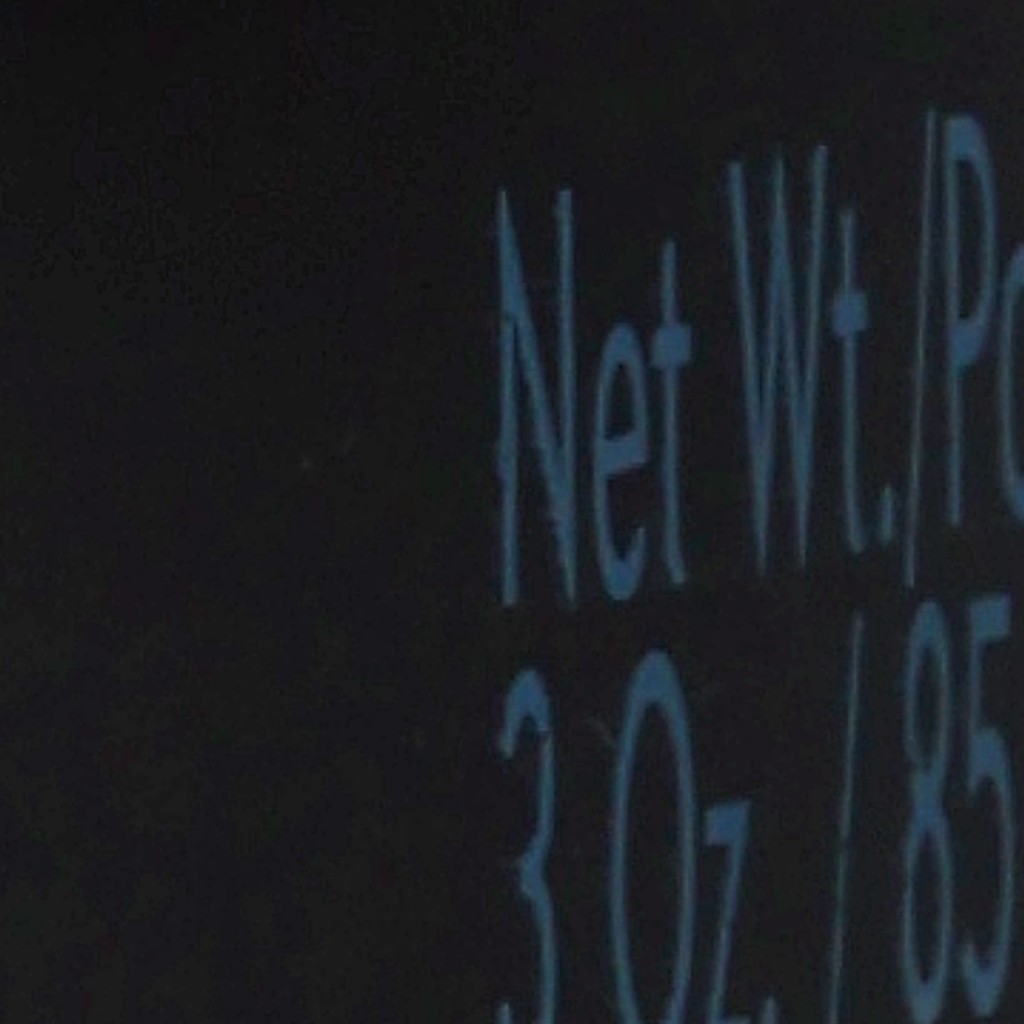 Net Wt./Po
3 Oz. / 85